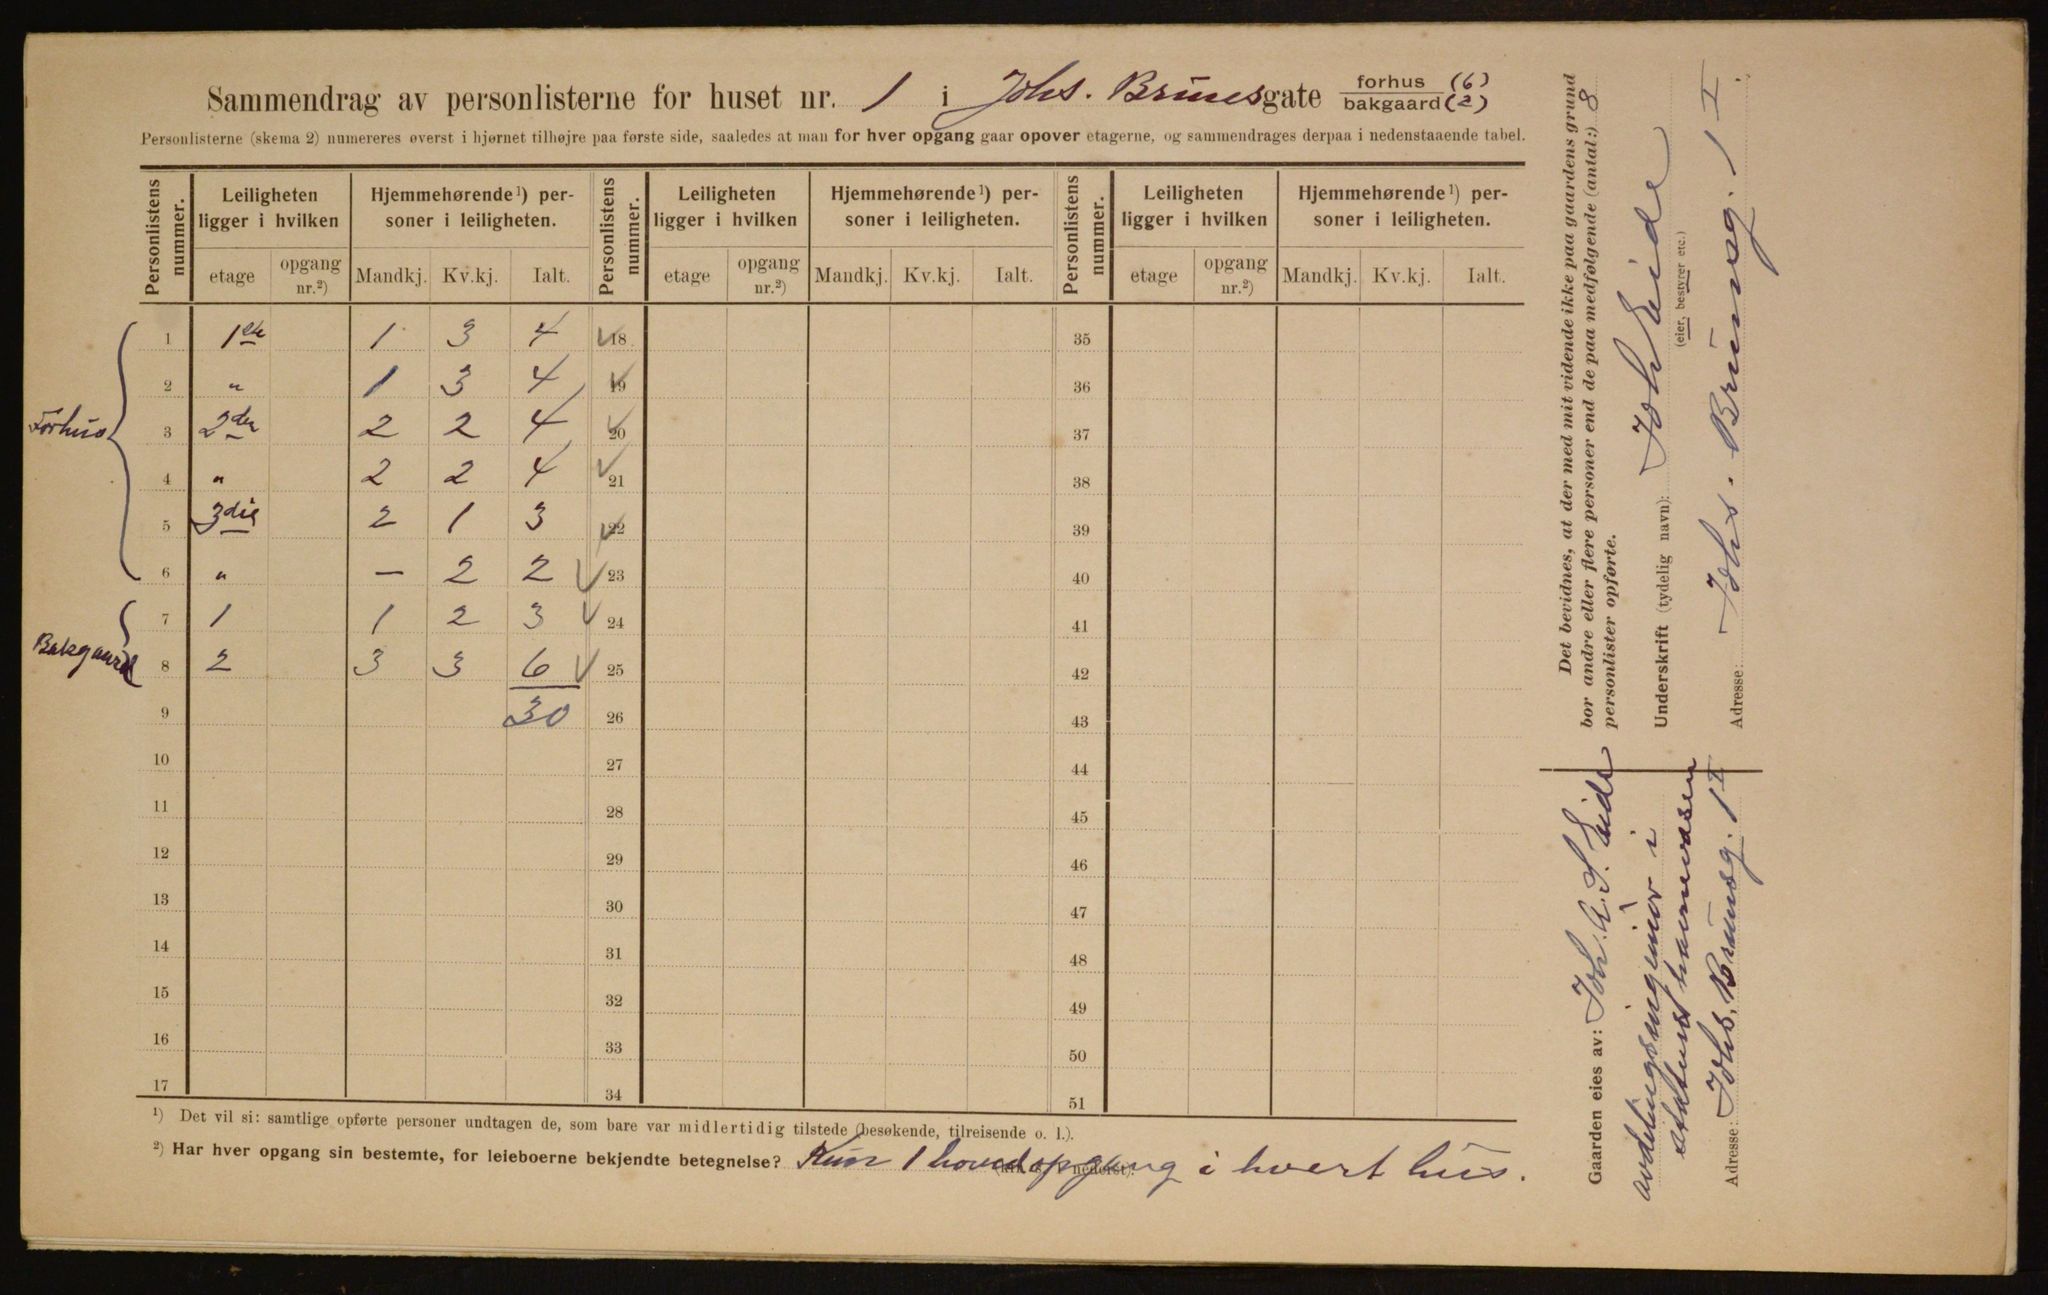 Sammendrag av personlisterne for huset nr. 1 i Johs. Brunsgate forhus (6) bakgaard (2)
Personlisterne (skema 2) numereres øverst i hjørnet tilhøjre paa første side, saaledes at man for hver opgang gaar opover etagerne, og sammendrages derpaa i nedenstaaende tabel.
Personlistens nummer. Leiligheten ligger i hvilken Hjemmehørende ¹) personer i leiligheten. Personlistens nummer. Leiligheten ligger i hvilken Hjemmehørende ¹) personer i leiligheten. Personlistens nummer. Leiligheten ligger i hvilken Hjemmehørende ¹) personer i leiligheten.
etage opgang nr.²) Mandkj. Kv.kj. Ialt. etage opgang nr.²) Mandkj. Kv.kj. Ialt. etage opgang nr.²) Mandkj. Kv.kj. Ialt.
Forhus
1 1ste 1 3 4 18 35
2 " 1 3 4 19 36
3 2den 2 2 4 20 37
4 " 2 2 4 21 38
5 3die 2 1 3 22 39
6 " — 2 2 23 40
Bakgaard
7 1 1 2 3 24 41
8 2 3 3 6 25 42
9 30 26 43
10 27 44
11 28 45
12 29 46
13 30 47
14 31 48
15 32 49
16 33 50
17 34 51
¹) Det vil si: samtlige opførte personer undtagen de, som bare var midlertidig tilstede (besøkende, tilreisende o. l.).
²) Har hver opgang sin bestemte, for leieboerne bekjendte betegnelse? Kun 1 hovedopgang i hvert hus.
Det bevidnes, at der med mit vidende ikke paa gaardens grund
bor andre eller flere personer end de paa medfølgende (antal:) 8
personlister opførte.
Underskrift (tydelig navn): Joh Eide
(eier, bestyrer etc.)
Adresse: Johs. Brunsg. 1 I.
Gaarden eies av: Joh. A. S. Eide
avdelingsingeniør i
statens havnevæsen
Adresse: Johs. Brunsg. 1 I